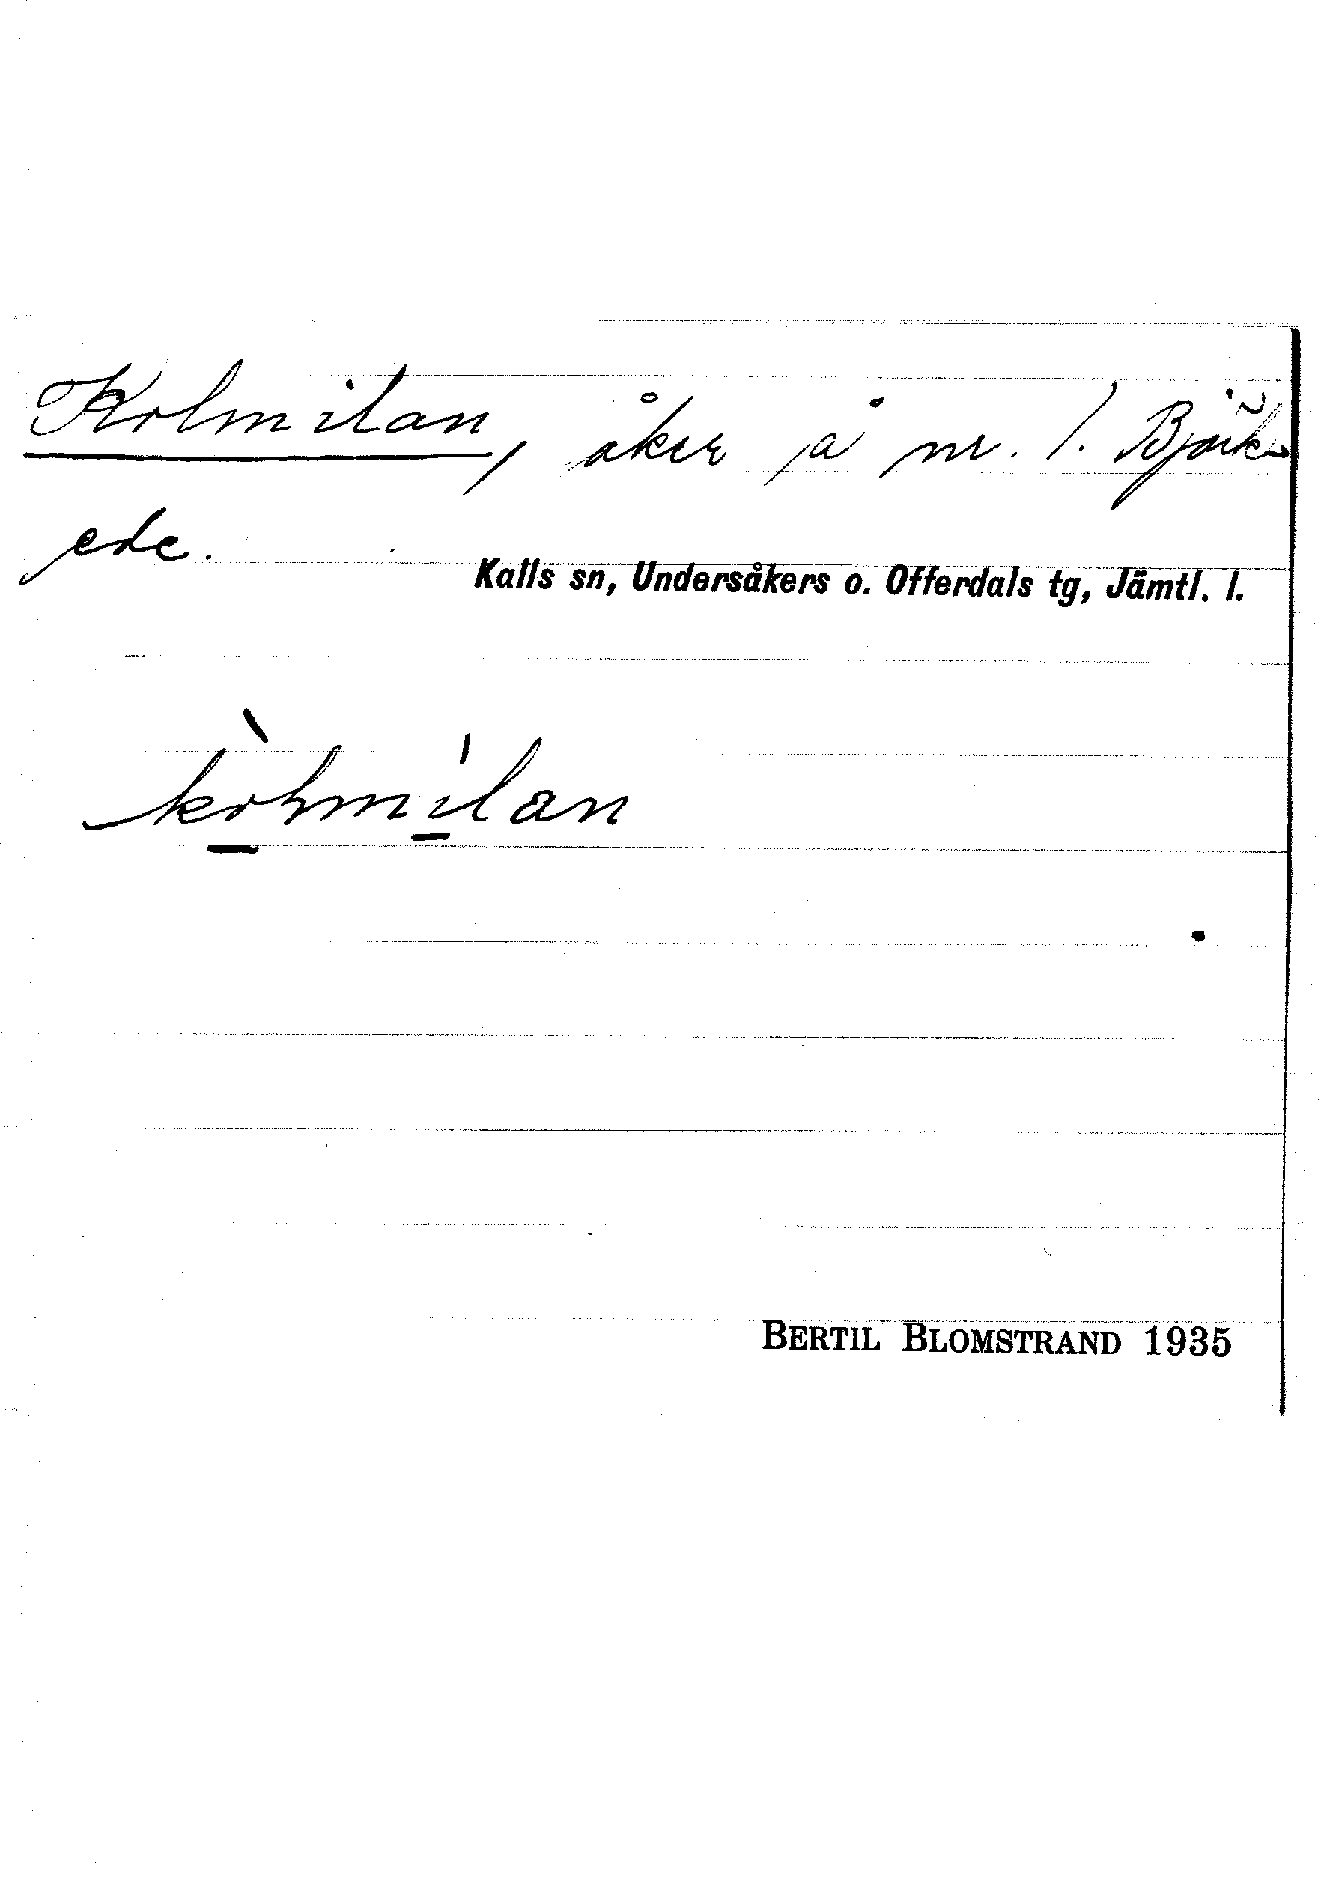 Kolmilan, åker å nr. 1. Björk-
ede.
Kalls sn, Undersåkers o. Offerdals tg, Jämtl. l.
kòlmílan
BERTIL BLOMSTRAND 1935